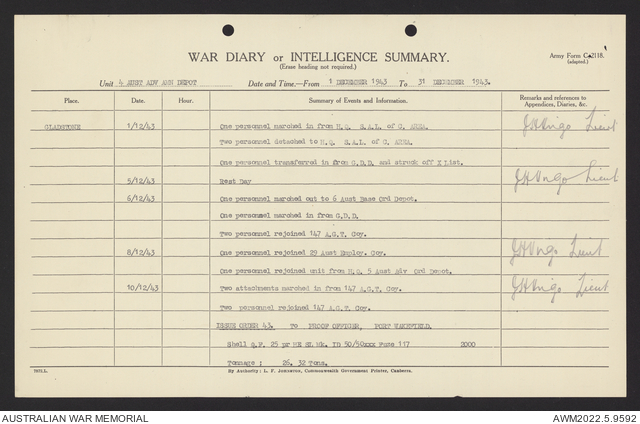 WAR DIARY or INTELLIGENCE SUMMARY.
Army Form C.2118.
(Erase heading not required.)
(adapted.)
Unit 4 AUST ADV AMN DEPOT Date and Time.—From 1 DECEMBER 1943 To 31 DECEMBER 1943.
Place. Date. Hour. Summary of Events and Information. Remarks and references to Appendices, Diaries, &c.
GLADSTONE 1/12/43 One personnel marched in from H.Q. S.A.L. of C. AREA. Lieut
Two personnel detached to H.Q. S.A.L. of C. AREA.
One personnel transferred in from G.D.D. and struck off X List.
5/12/43 Rest Day Lieut
6/12/43 One personnel marched out to 6 Aust Base Ord Depot.
One personnel marched in from G.D.D.
Two personnel rejoined 147 A.G.T. Coy.
8/12/43 One personnel rejoined 29 Aust Employ. Coy. Lieut
One personnel rejoined unit from H.Q. 5 Aust Adv Ord Depot.
10/12/43 Two attachments marched in from 147 A.G.T. Coy. Lieut
Two personnel rejoined 147 A.G.T. Coy.
ISSUE ORDER 43. to PROOF OFFICER, PORT
Shell Q.F. 25 pr HE Mk. 1D 50/50xxx Fuze 117 2000
Tonnage : 26. 32 Tons.
By Authority: L. F. Johnston, Commonwealth Government Printer, Canberra.
AUSTRALIAN WAR MEMORIAL
AWM2022.5.9592